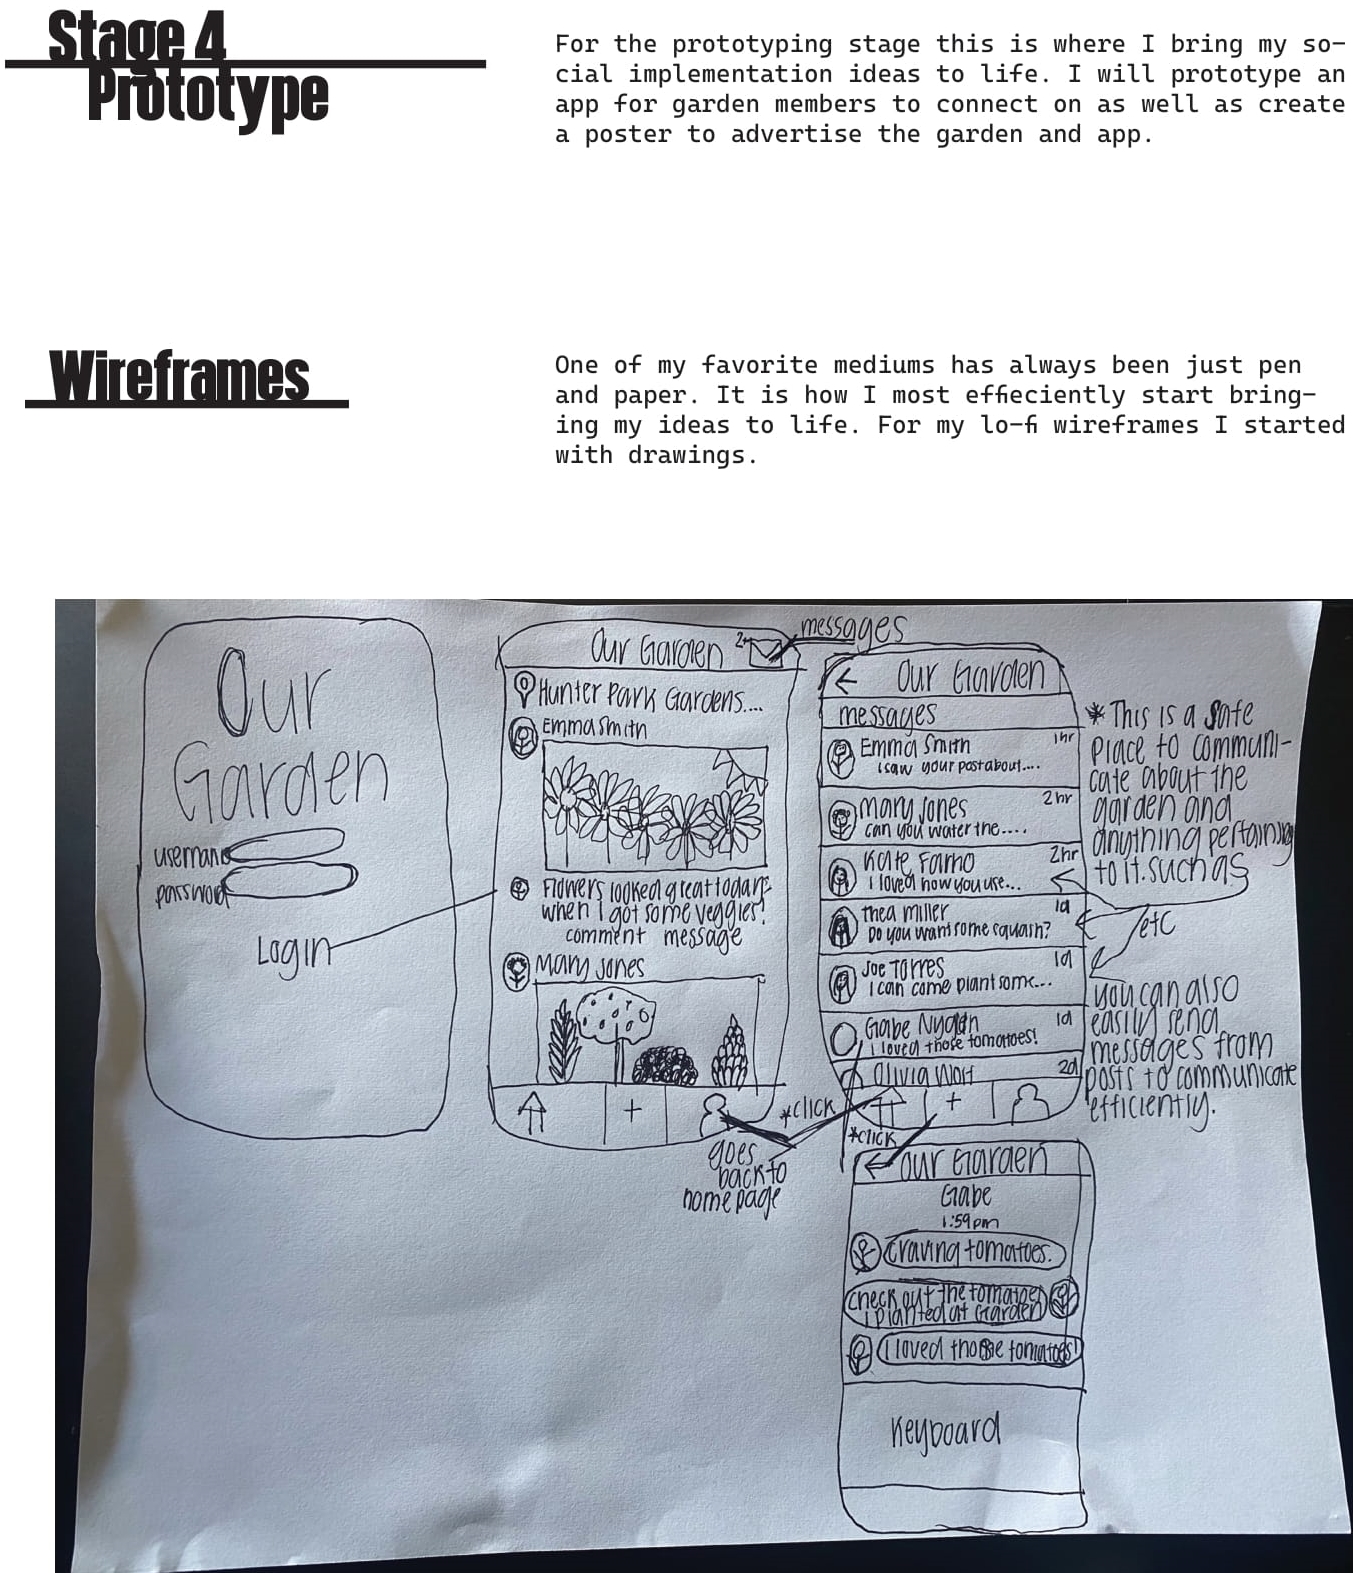 Stage 4
Prototype
For the prototyping stage this is where I bring my so-
cial implementation ideas to life. I will prototype an
app for garden members to connect on as well as create
a poster to advertise the garden and app.
Wireframes
One of my favorite mediums has always been just pen
and paper. It is how I most effieciently start bring-
ing my ideas to life. For my lo-fi wireframes I started
with drawings.
Our
Garden
password
Login
Our Garden
2+
messages
Hunter Park Gardens....
Emma Smith
Flowers looked great today
when I got some veggies!
comment message
Mary Jones
+
*click
goes
back to
home page
← Our Garden
messages
Emma Smith 1hr
I saw your post about....
Mary Jones 2hr
can you water the....
Kate Farno 2hr
I loved how you use...
Thea Miller 1d
Do you want some squash?
Joe Torres 1d
I can come plant some...
Gabe 1d
I loved those tomatoes!
Olivia 2d
+
*click
* This is a safe
place to communi-
cate about the
garden and
anything pertaining
to it. such as
etc
you can also
easily send
messages from
posts to communicate
efficiently.
← Our Garden
Gabe
1:59pm
Craving tomatoes.
Check out the tomatoes
I planted at Garden
I loved those tomatoes!
Keyboard